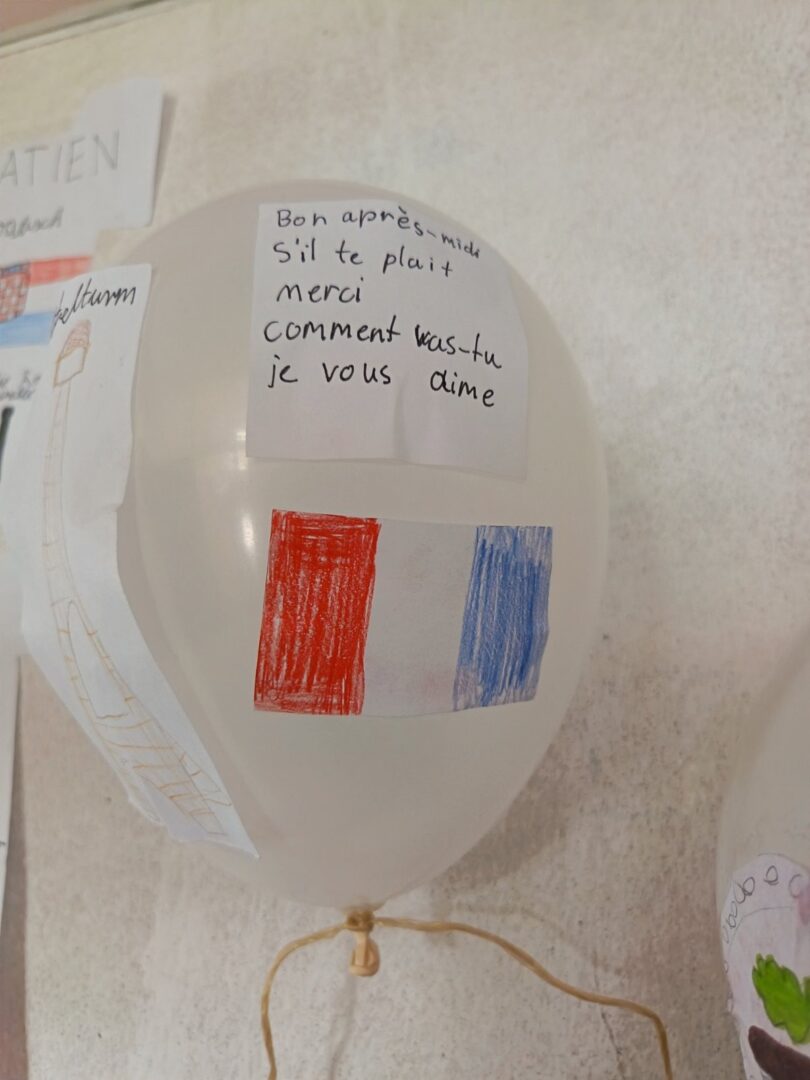 ATIEN
Bon après-midi
S'il te plait
merci
comment vas-tu
je vous aime